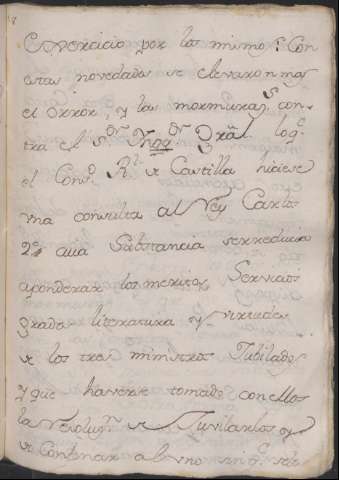 Exercicio por lo mismo. Con
estas novedades se elevaron mas
el error, y las murmuraz.s con-
tra el S.or Ynq.or Gräl. log.e
el Cons.o R.l de Castilla hiciese
vna consulta al Rey Carlos
2.o cuia Substancia se reducia
aponderar los meritos, Servicios
grados literatura y virtudes
de los tres ministros Jubilados
y que haverse tomado con ellos
la resoluz.n de Jubilarlos y
de Continar a l uno sin q.e